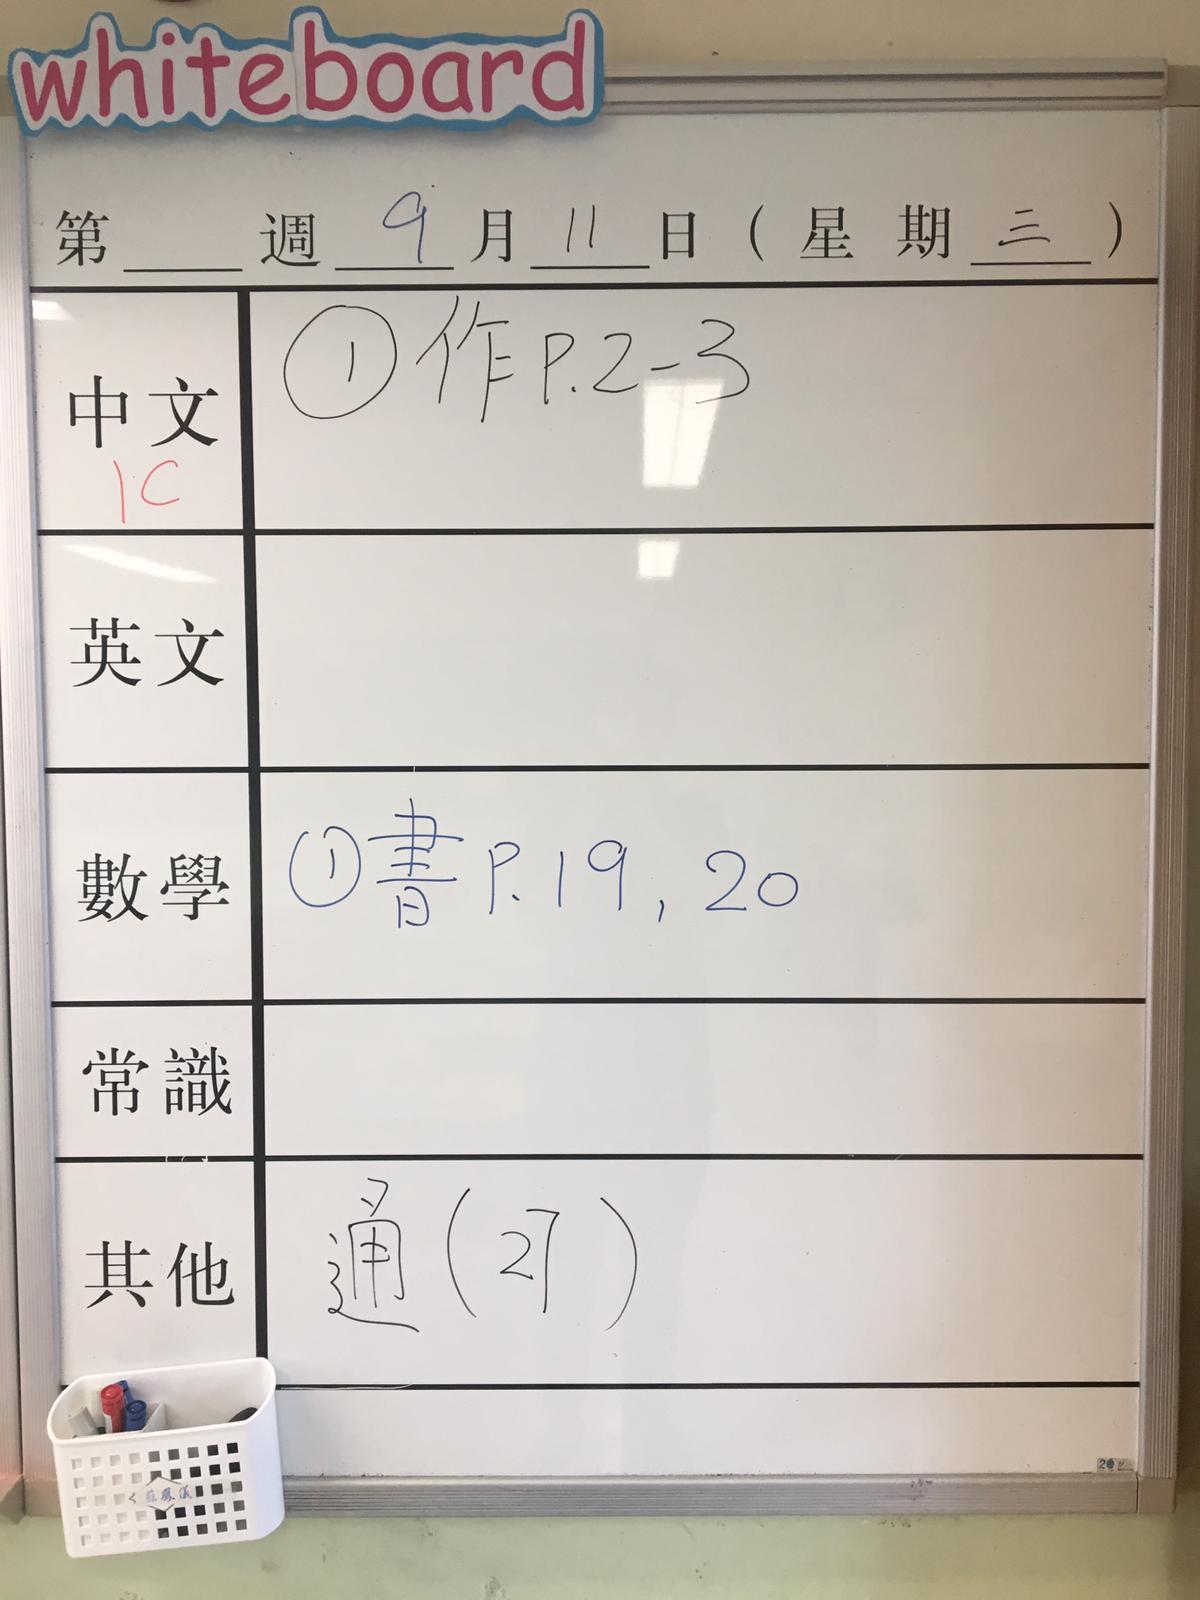 whiteboard
第____週 9 月 11 日 ( 星期 三 )
中文
1C
① 作 P.2-3
英文
數學
① 書 P.19, 20
常識
其他
通 ( 27 )
蘇鳳儀